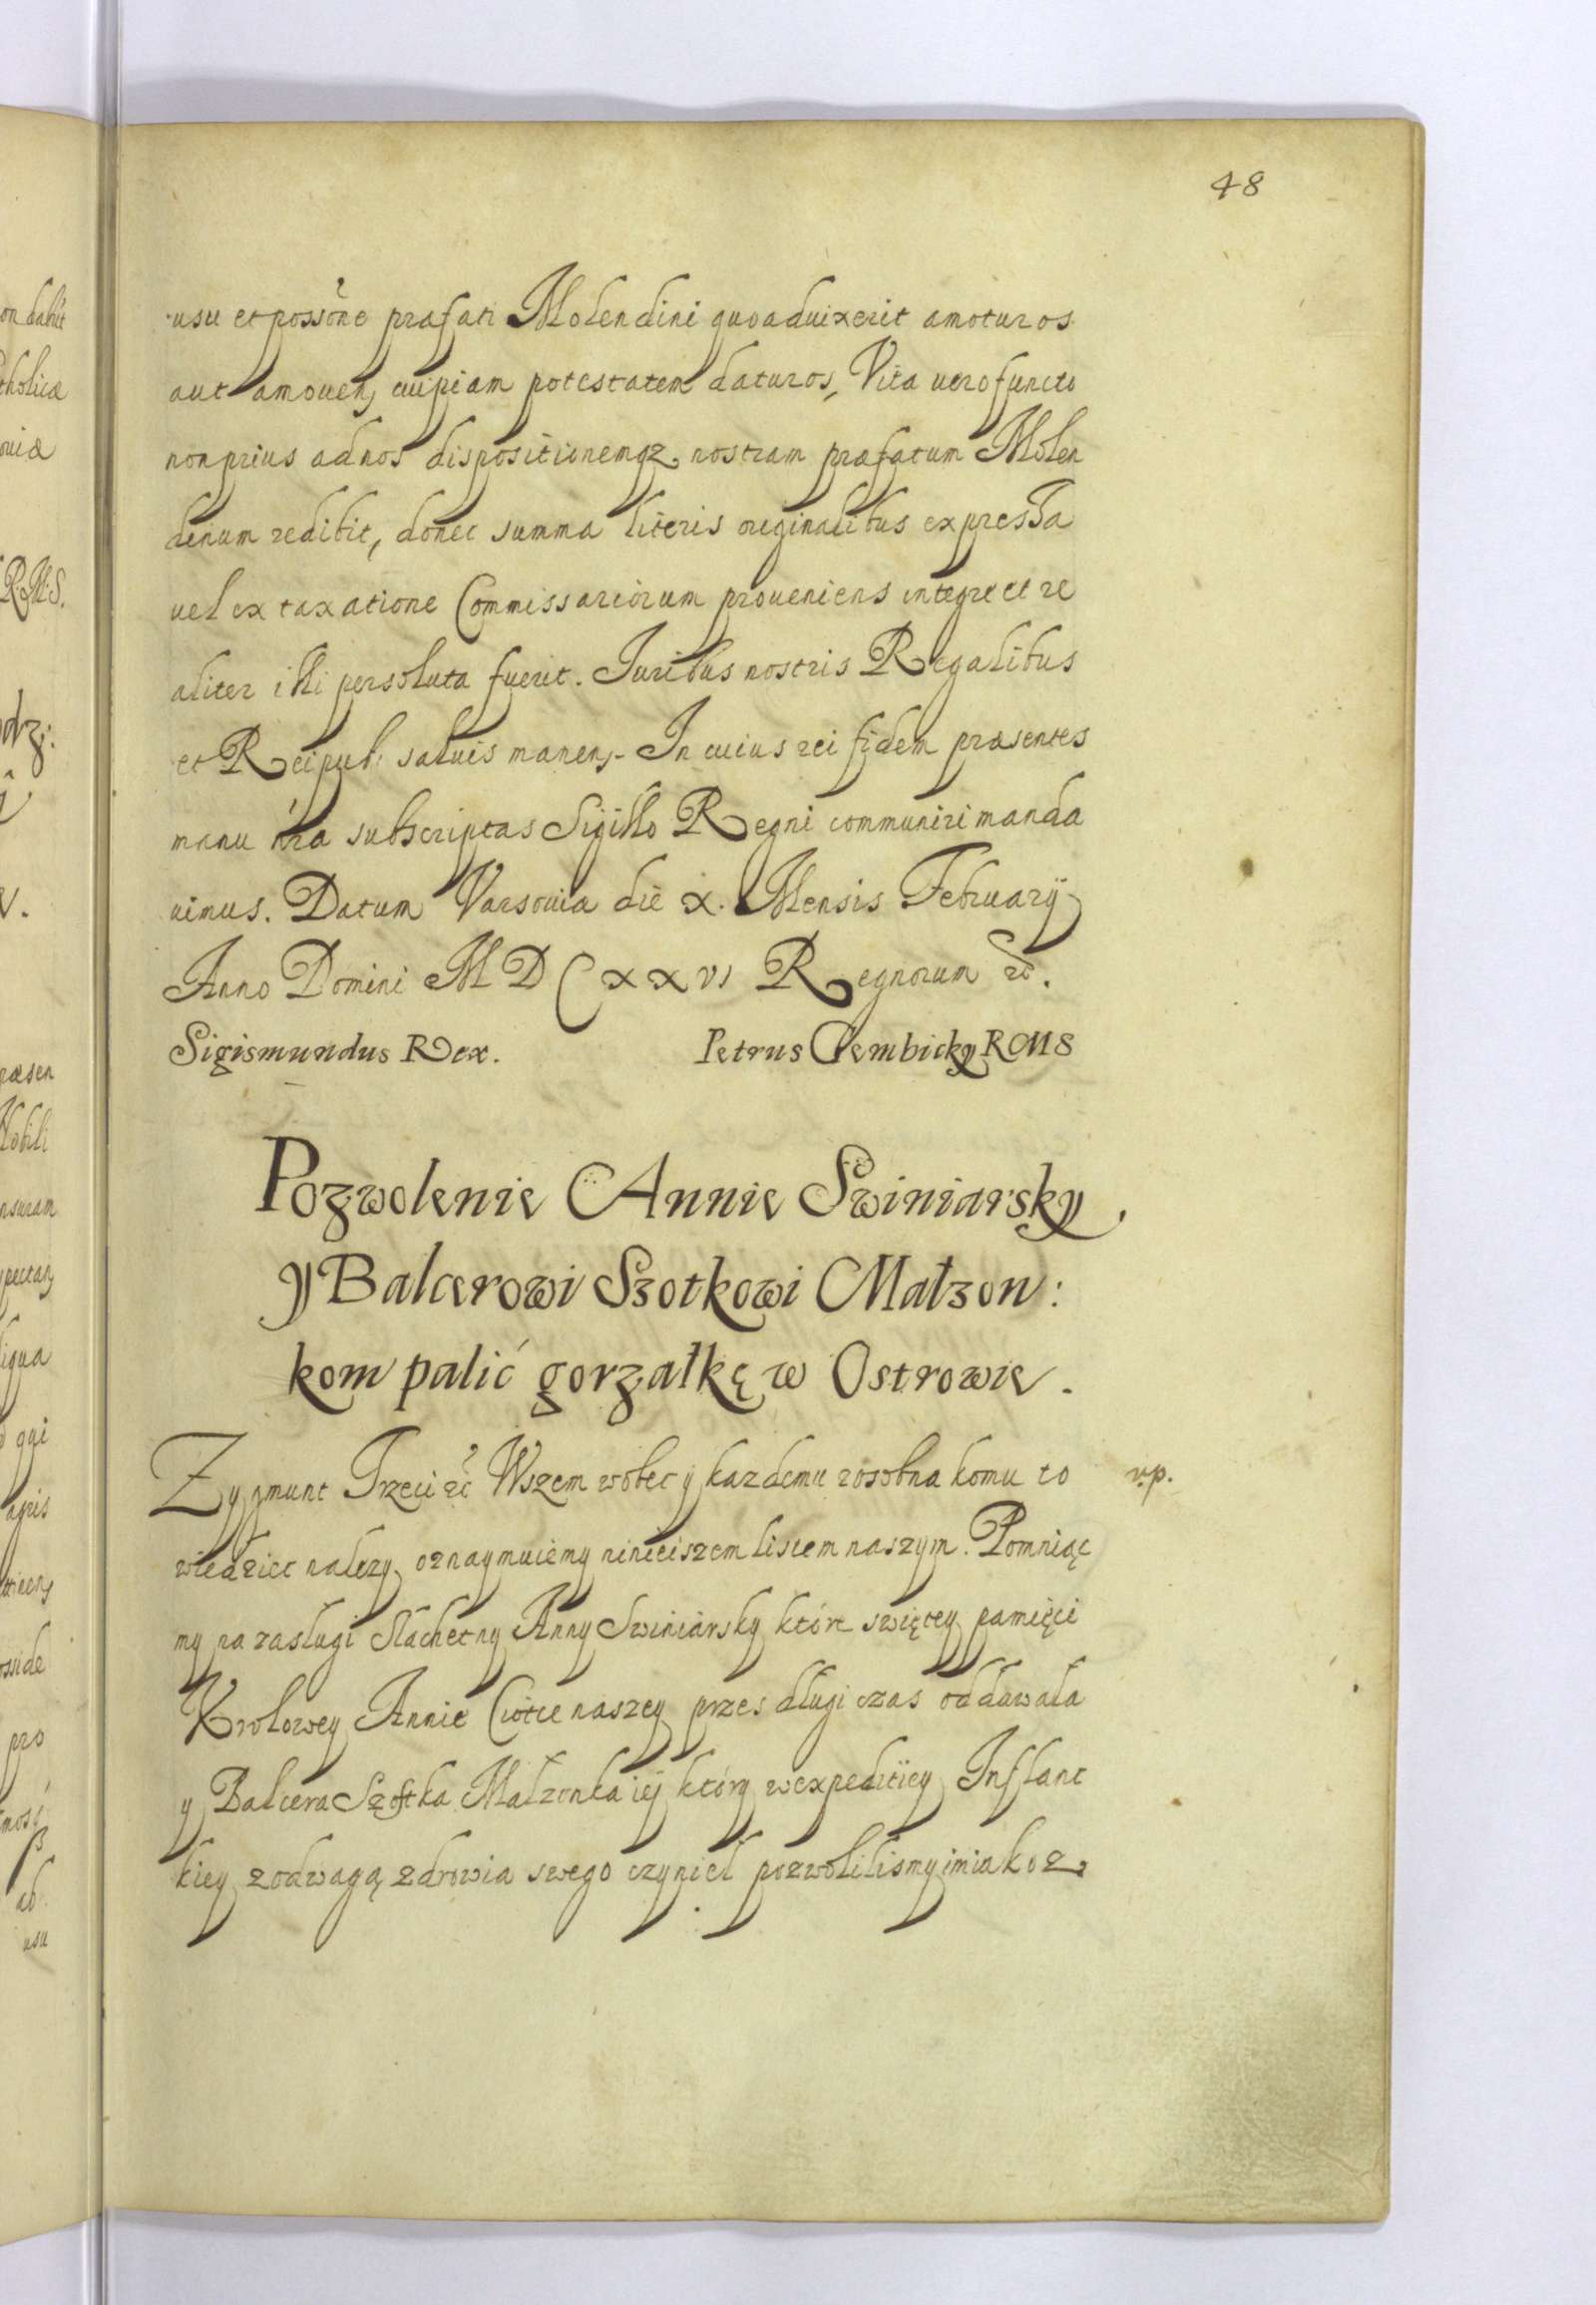 48
usu et possone præfati Molendini quoaduixerit amoturos
aut amouen cuipiam potestatem daturos, Vita uero functo
non prius ad nos dispositionemqz nostram præfatum Molen
dinum redibit, donec summa literis originalibus expressa
uel ex taxatione Commissariorum proueniens integre et re
aliter illi persoluta fuerit. Juribus nostris Regalibus
et Reipub: saluis manen. In cuius rei fidem præsentes
manu nra subscriptas Sigillo Regni communiri manda
uimus. Datum Varsouiæ die ix. Mensis Februarÿ
Anno Domini MDCxxvi Regnorum etc.
Sigismundus Rex. Petrus Gembicky RMS
Pozwolenie Annie Swiniarsky,
y Balcerowi Szotkowi Małzon:
kom palić gorzałkę w Ostrowie.
Zygmunt Trzeci etc Wszem wobec y kazdemu zosobna komu to
wiedziec nalezy, oznaymuiemy ninieiszem listem naszym. Pomniąc
my na zasługi Slachetny Anny Swiniarsky które swiętey pamięci
Krolowey Annie Ciotce naszey przes długi czas oddawała
y Balcera Szostka Małzonka iéj który wexpeditiey Inflant
kiey zodwagą zdrowia swego czynieł pozwolilismy im iakoz
vp.
on dabit
tholicæ
ouiæ
RMS.
odz:
v.
ræsen
Nobili
nsuram
igua
qui
apis
osside
pro
ad
usu